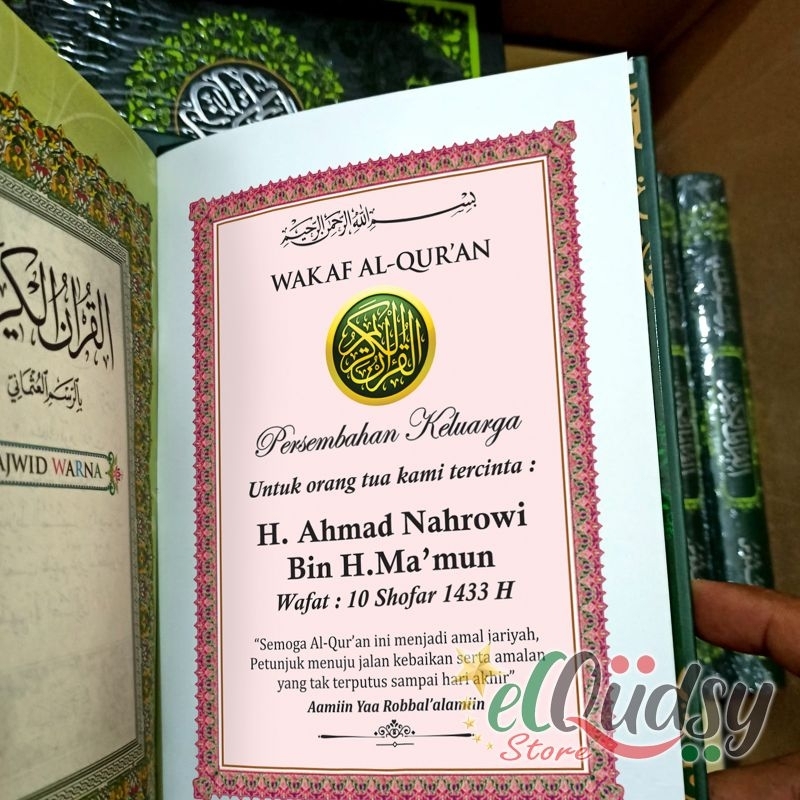 القرآن الكريم
بِالرَّسمِ العُثمَانِي
AJWID WARNA
بِسْمِ اللهِ الرَّحْمٰنِ الرَّحِيْمِ
WAKAF AL-QUR'AN
القرآن الكريم
Persembahan Keluarga
Untuk orang tua kami tercinta :
H. Ahmad Nahrowi
Bin H.Ma'mun
Wafat : 10 Shofar 1433 H
“Semoga Al-Qur'an ini menjadi amal jariyah,
Petunjuk menuju jalan kebaikan serta amalan
yang tak terputus sampai hari akhir”
Aamiin Yaa Robbal'alamiin
elQudsy
Store